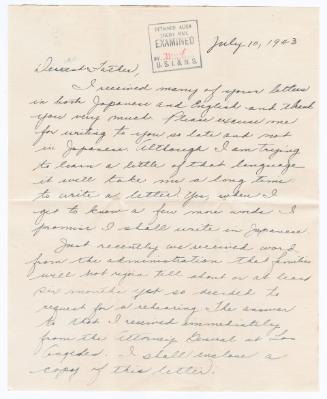 DETAINED ALIEN
ENEMY MAIL
EXAMINED
BY
U. S. I. & N. S.
July 10, 1943
Dearest Father,
I received many of your letters
in both Japanese and English and thank
you very much. Please excuse me
for writing to you so late and not
in Japanese. Although I am trying
to learn a little of that language
it will take me a long time
to write a letter. Yes, when I
get to know a few more words I
promise I shall write in Japanese.
Just recently we received word
from the administration that families
will not rejoin till about or at least
six months yet so decided to
request for a rehearing. The answer
to that I received immediately
from the Attorney General at Los
Angeles. I shall enclose a
copy of this letter.